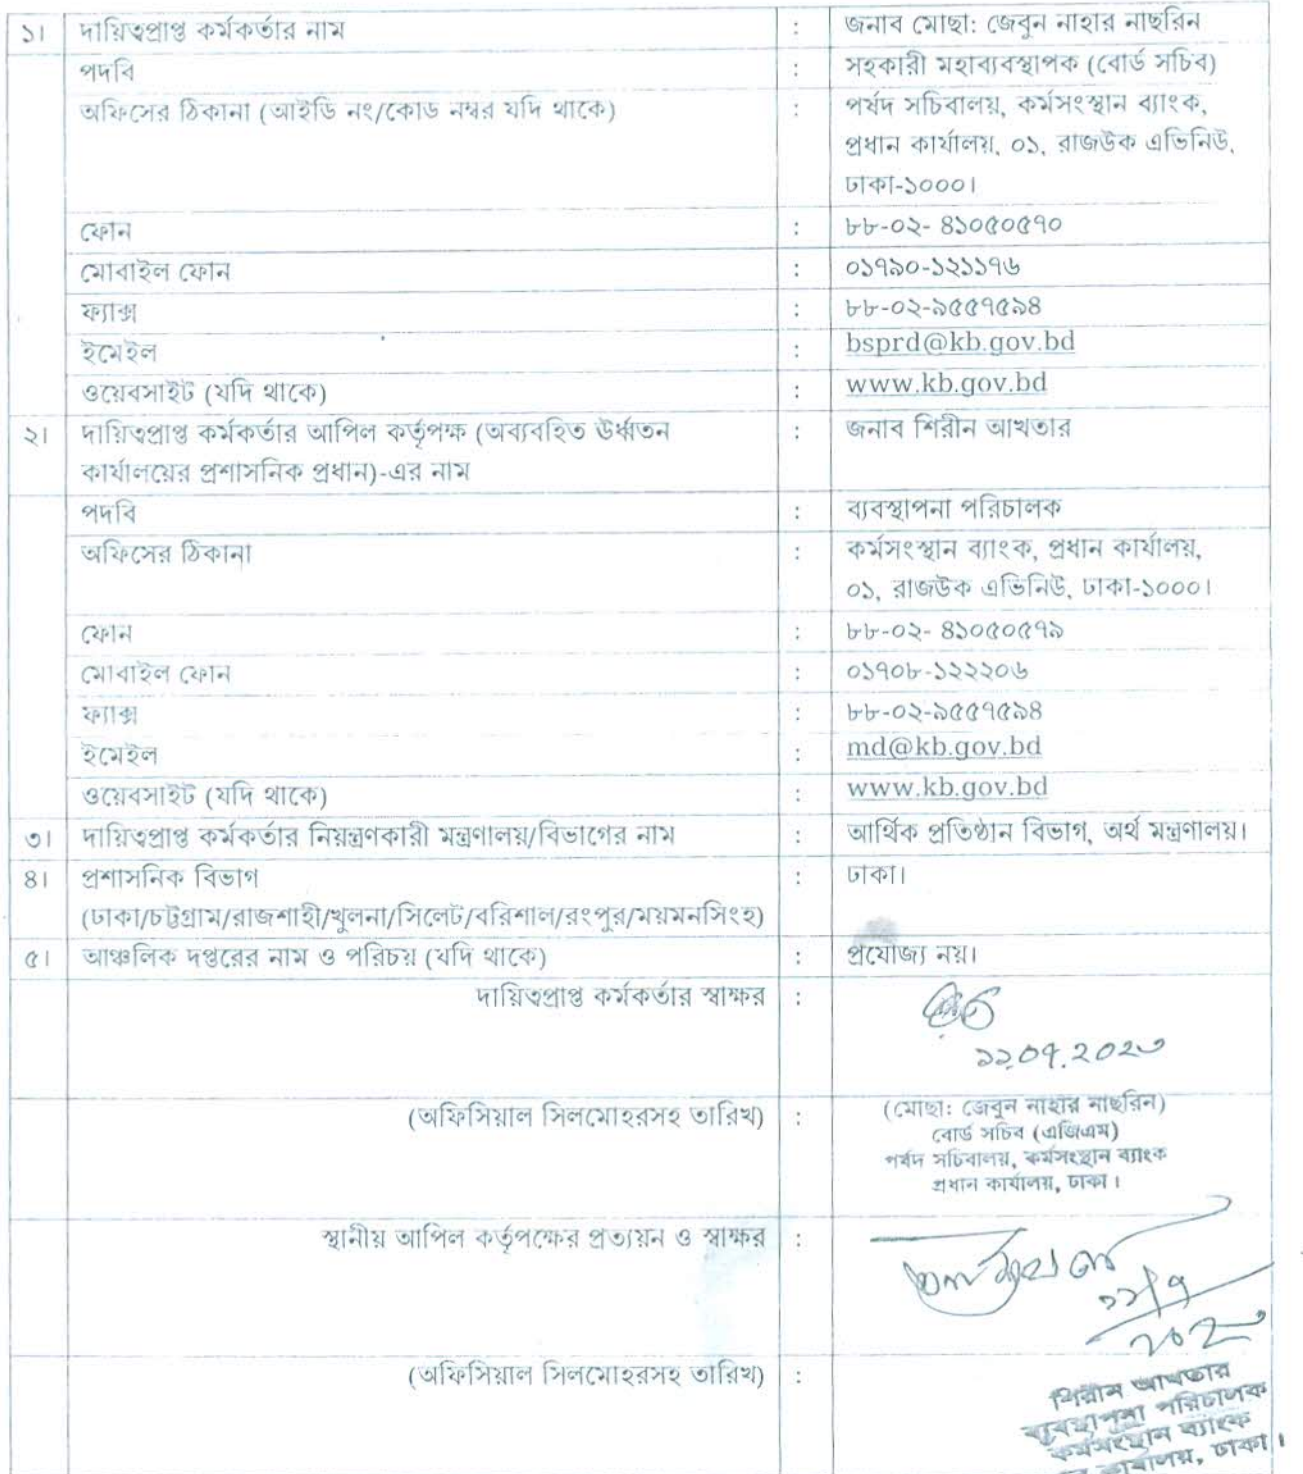 ১। দায়িত্বপ্রাপ্ত কর্মকর্তার নাম : জনাব মোছা: জেবুন নাহার নাছরিন
পদবি : সহকারী মহাব্যবস্থাপক (বোর্ড সচিব)
অফিসের ঠিকানা (আইডি নং/কোড নম্বর যদি থাকে) : পর্ষদ সচিবালয়, কর্মসংস্থান ব্যাংক,
প্রধান কার্যালয়, ০১, রাজউক এভিনিউ,
ঢাকা-১০০০।
ফোন : ৮৮-০২- ৪১০৫০৫৭০
মোবাইল ফোন : ০১৭৯০-১২১১৭৬
ফ্যাক্স : ৮৮-০২-৯৫৫৭৫৯৪
ইমেইল : bsprd@kb.gov.bd
ওয়েবসাইট (যদি থাকে) : www.kb.gov.bd
২। দায়িত্বপ্রাপ্ত কর্মকর্তার আপিল কর্তৃপক্ষ (অব্যবহিত ঊর্ধ্বতন : জনাব শিরীন আখতার
কার্যালয়ের প্রশাসনিক প্রধান)-এর নাম
পদবি : ব্যবস্থাপনা পরিচালক
অফিসের ঠিকানা : কর্মসংস্থান ব্যাংক, প্রধান কার্যালয়,
০১, রাজউক এভিনিউ, ঢাকা-১০০০।
ফোন : ৮৮-০২- ৪১০৫০৫৭৯
মোবাইল ফোন : ০১৭০৮-১২২২০৬
ফ্যাক্স : ৮৮-০২-৯৫৫৭৫৯৪
ইমেইল : md@kb.gov.bd
ওয়েবসাইট (যদি থাকে) : www.kb.gov.bd
৩। দায়িত্বপ্রাপ্ত কর্মকর্তার নিয়ন্ত্রণকারী মন্ত্রণালয়/বিভাগের নাম : আর্থিক প্রতিষ্ঠান বিভাগ, অর্থ মন্ত্রণালয়।
৪। প্রশাসনিক বিভাগ : ঢাকা।
(ঢাকা/চট্টগ্রাম/রাজশাহী/খুলনা/সিলেট/বরিশাল/রংপুর/ময়মনসিংহ)
৫। আঞ্চলিক দপ্তরের নাম ও পরিচয় (যদি থাকে) : প্রযোজ্য নয়।
দায়িত্বপ্রাপ্ত কর্মকর্তার স্বাক্ষর :
১১.০৭.২০২৩
(অফিসিয়াল সিলমোহরসহ তারিখ) : (মোছা: জেবুন নাহার নাছরিন)
বোর্ড সচিব (এজিএম)
পর্ষদ সচিবালয়, কর্মসংস্থান ব্যাংক
প্রধান কার্যালয়, ঢাকা।
স্থানীয় আপিল কর্তৃপক্ষের প্রত্যয়ন ও স্বাক্ষর :
১১/৭
২০২৩
(অফিসিয়াল সিলমোহরসহ তারিখ) : শিরীন আখতার
ব্যবস্থাপনা পরিচালক
কর্মসংস্থান ব্যাংক
কার্যালয়, ঢাকা।